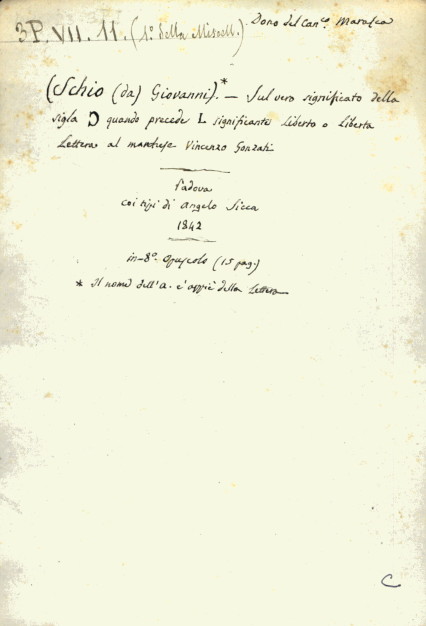 3P.VII.11.(1º della Miscell.) Dono del Canco. Marasca
(Schio (da) Giovanni).* — Sul vero significato della
sigla Ɔ quando precede L significante liberto o liberta
Lettera al marchese Vincenzo Gonzati
Padova
coi tipi di Angelo Sicca
1842
in-8º. opuscolo (15 pag.)
* Il nome dell'A. è appiè della Lettera
C